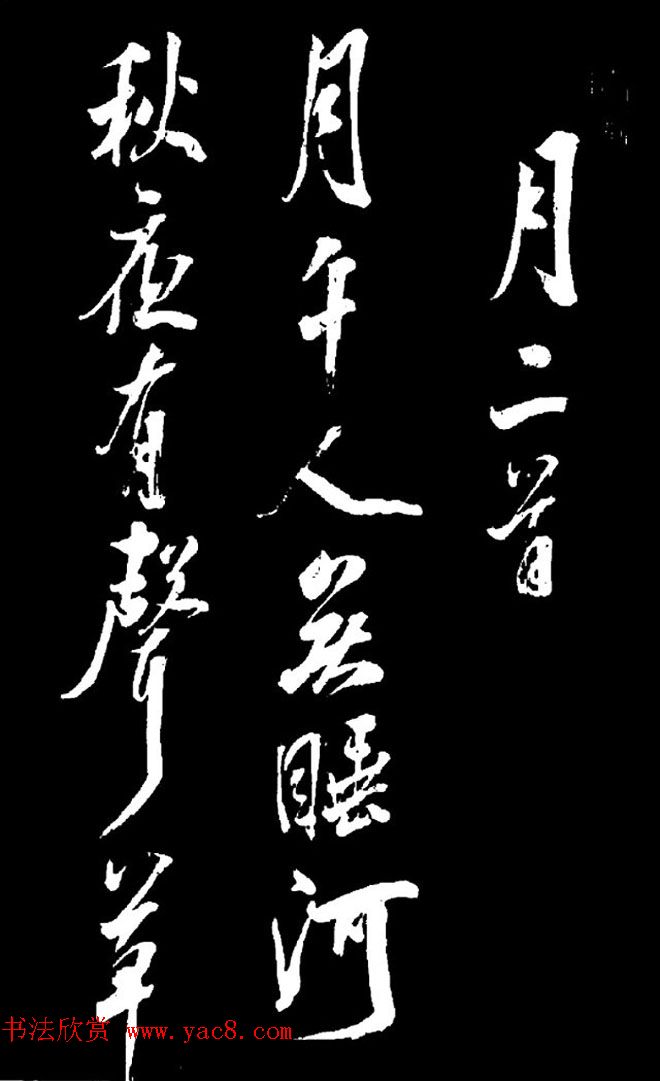 月二首
月午人無睡河
秋夜有聲草
书法欣赏 www.yac8.com